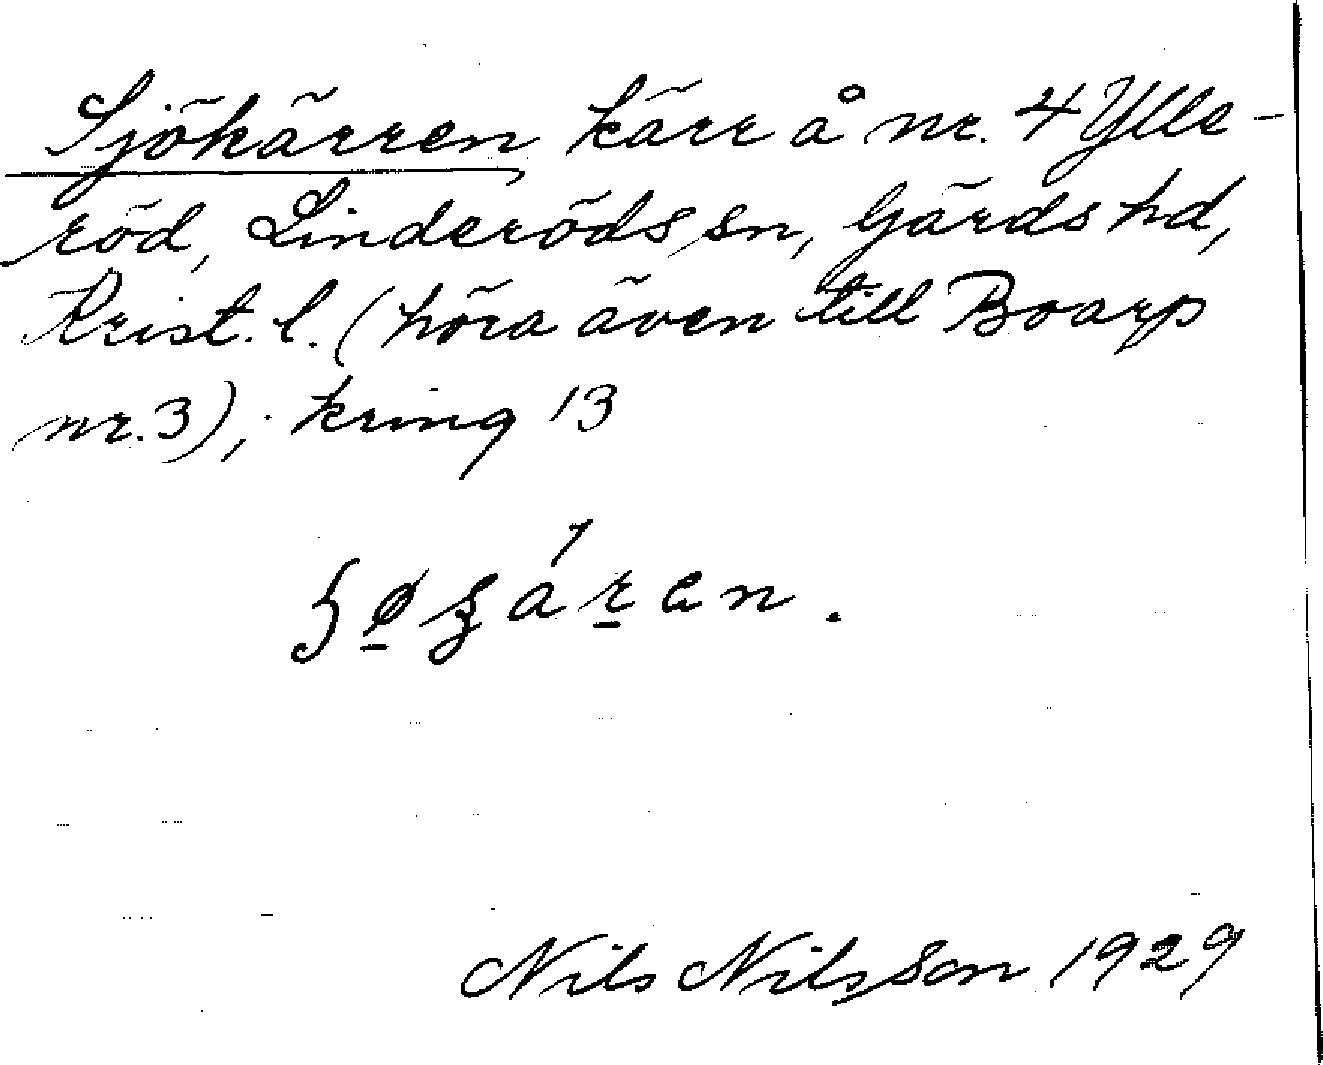 Sjökärren, kärr å nr. 4 Ylle-
röd, Linderöds sn, Gärds hd,
Krist. l. (höra även till Boarp
nr. 3); kring 13
Nils Nilsson 1929